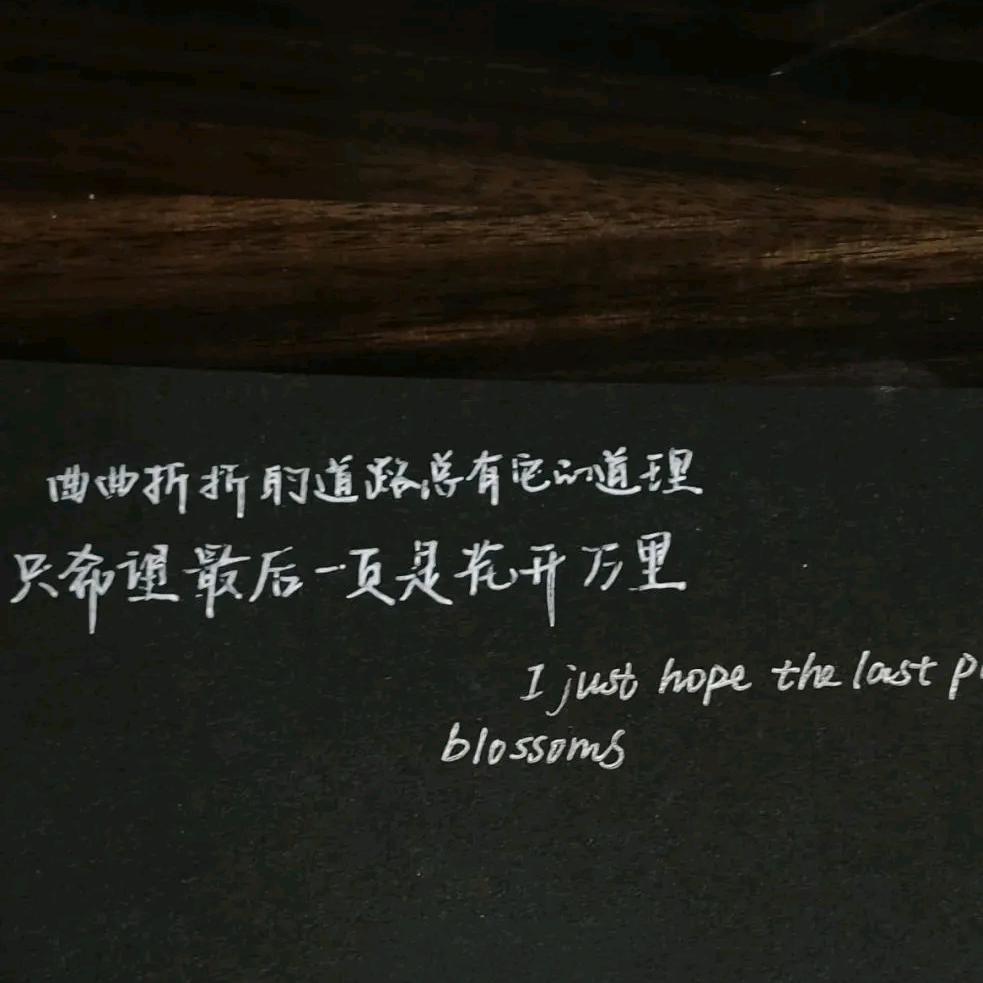 曲曲折折的道路总有它的道理
只希望最后一页是花开万里
I just hope the last
blossoms